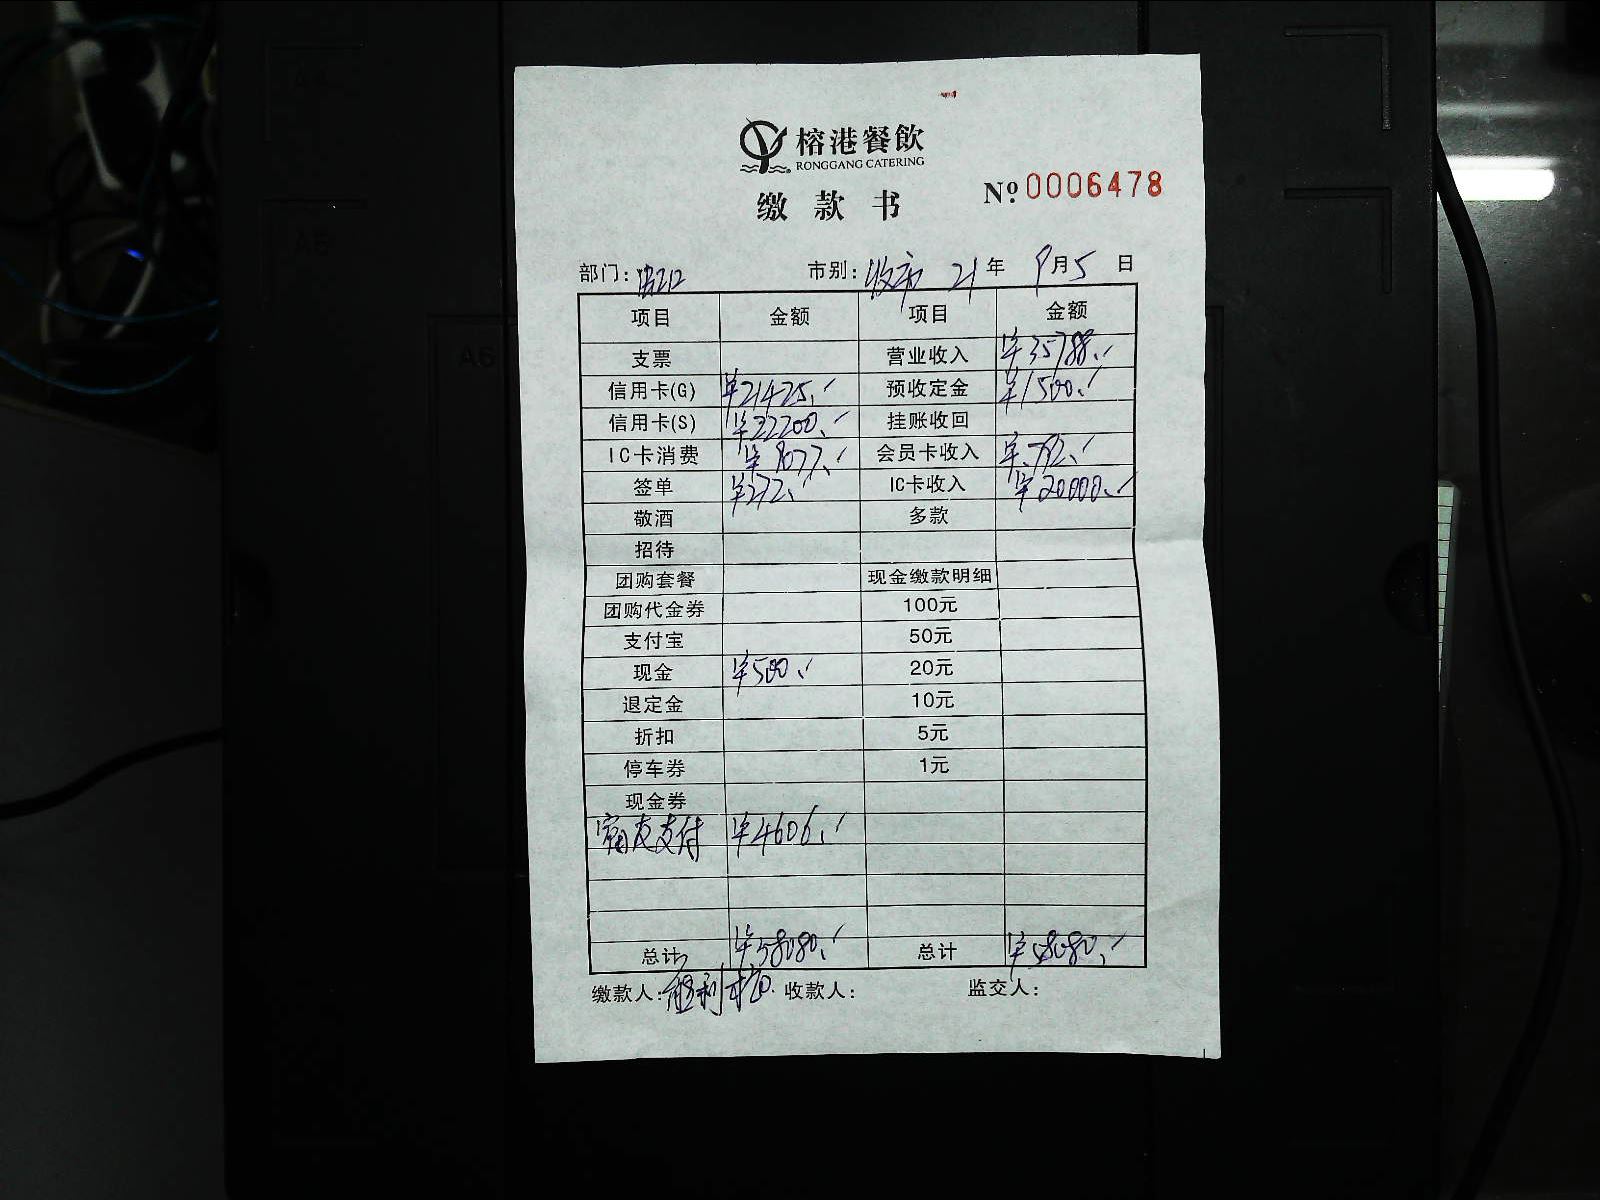 榕港餐飲
RONGGANG CATERING
缴款书 No.0006478
部门: 市别: 收市 21年 9月5日
项目 金额 项目 金额
支票 营业收入 ¥35788.
信用卡(G) ¥21425. 预收定金 ¥1500.
信用卡(S) ¥22200. 挂账收回
IC卡消费 ¥9077. 会员卡收入 ¥792.
签单 ¥272. IC卡收入 ¥20000.
敬酒 多款
招待
团购套餐 现金缴款明细
团购代金券 100元
支付宝 50元
现金 ¥500. 20元
退定金 10元
折扣 5元
停车券 1元
现金券
支付 ¥4606.
总计 ¥58080. 总计 ¥58080.
缴款人: 收款人: 监交人: